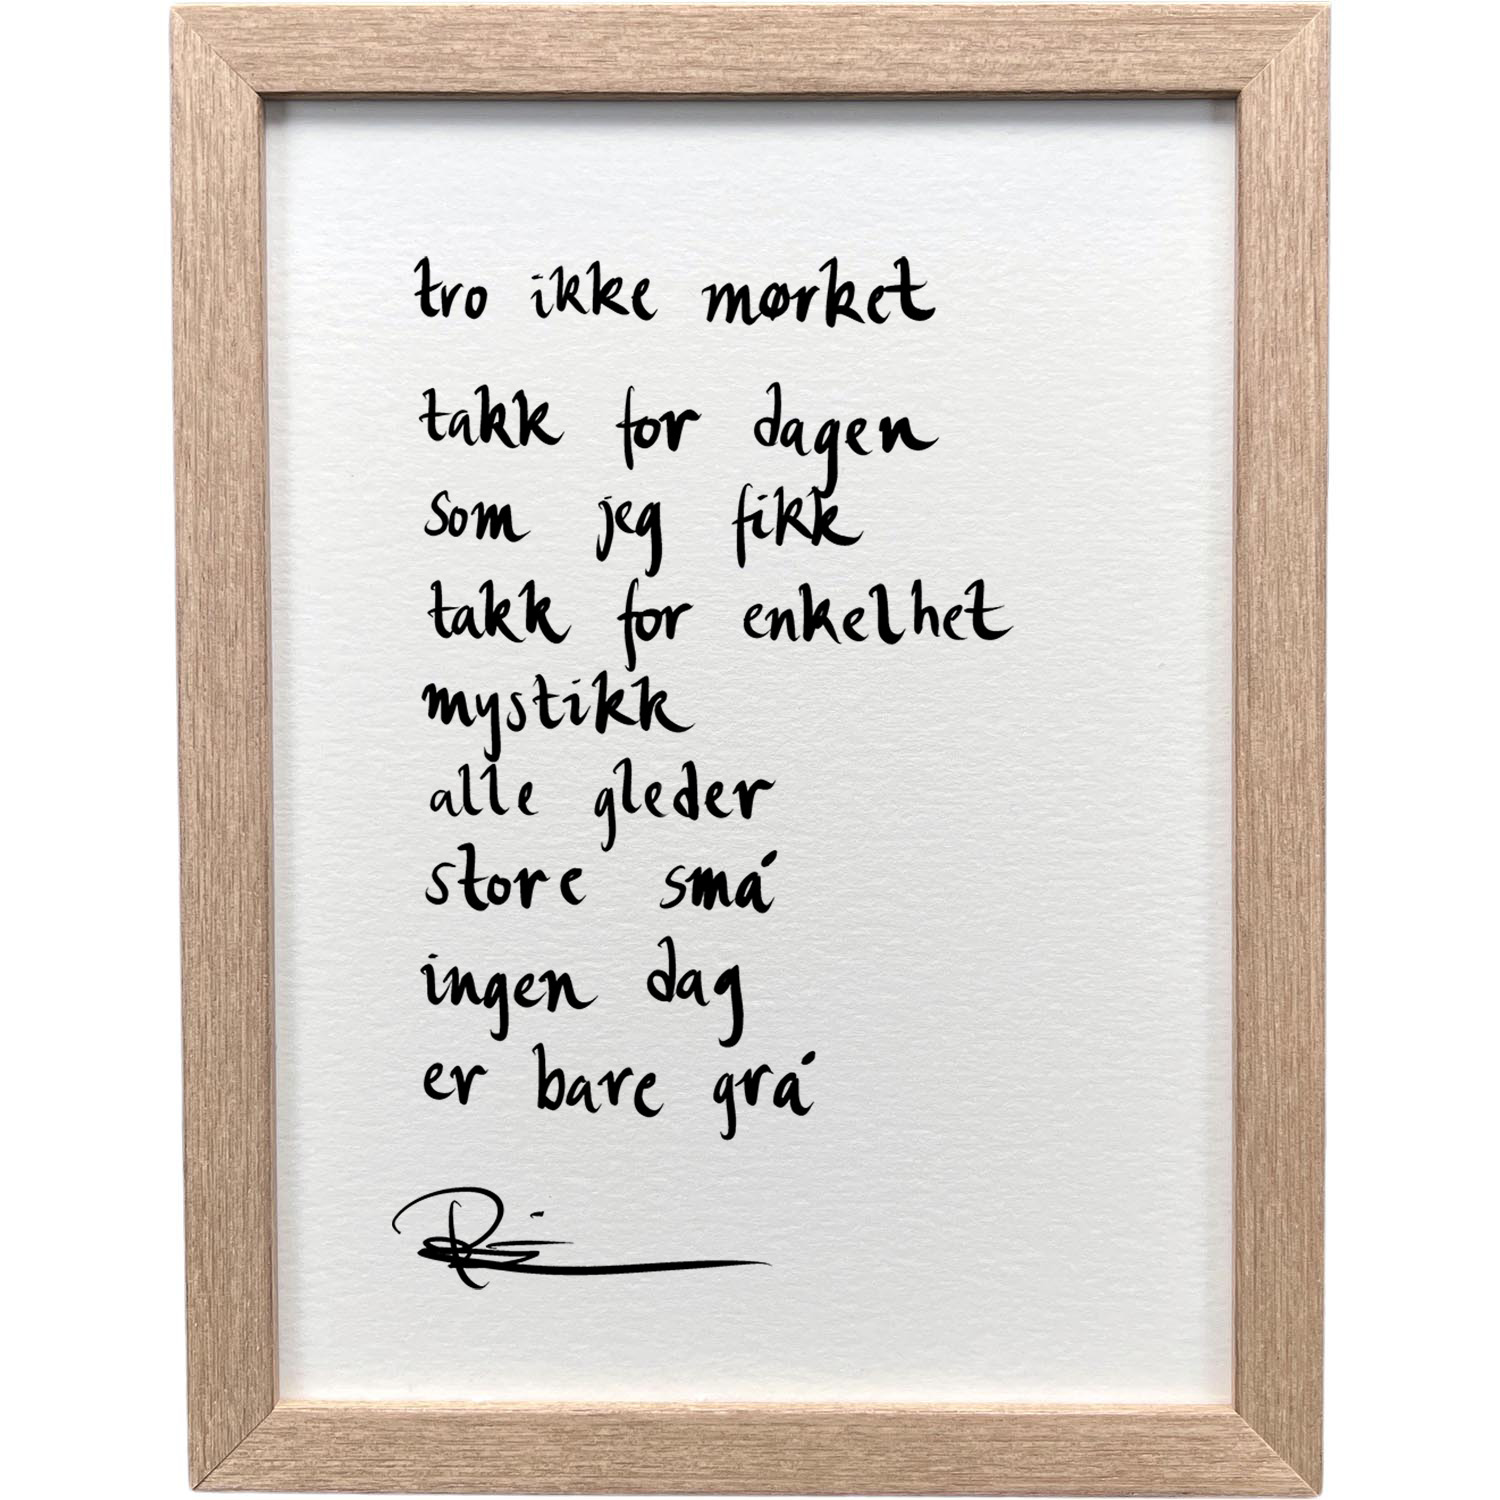 tro ikke mørket
takk for dagen
som jeg fikk
takk for enkelhet
mystikk
alle gleder
store små
ingen dag
er bare grå